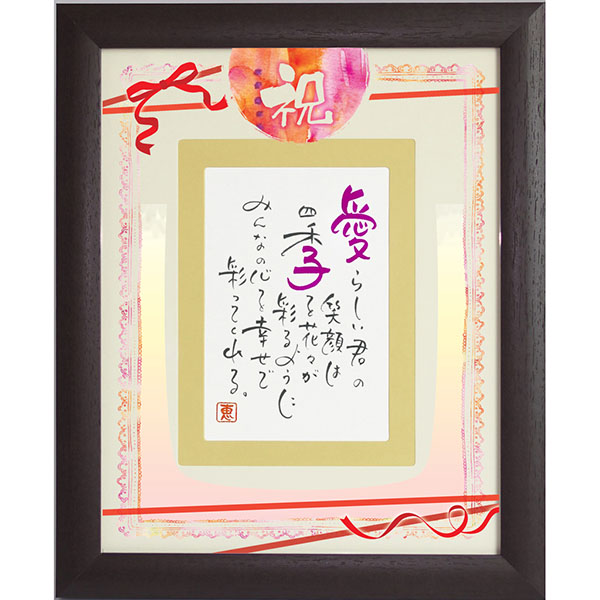 祝
愛らしい君の
笑顔は
四季を花々が
彩るように
みんなの心を幸せで
彩ってくれる。
恵